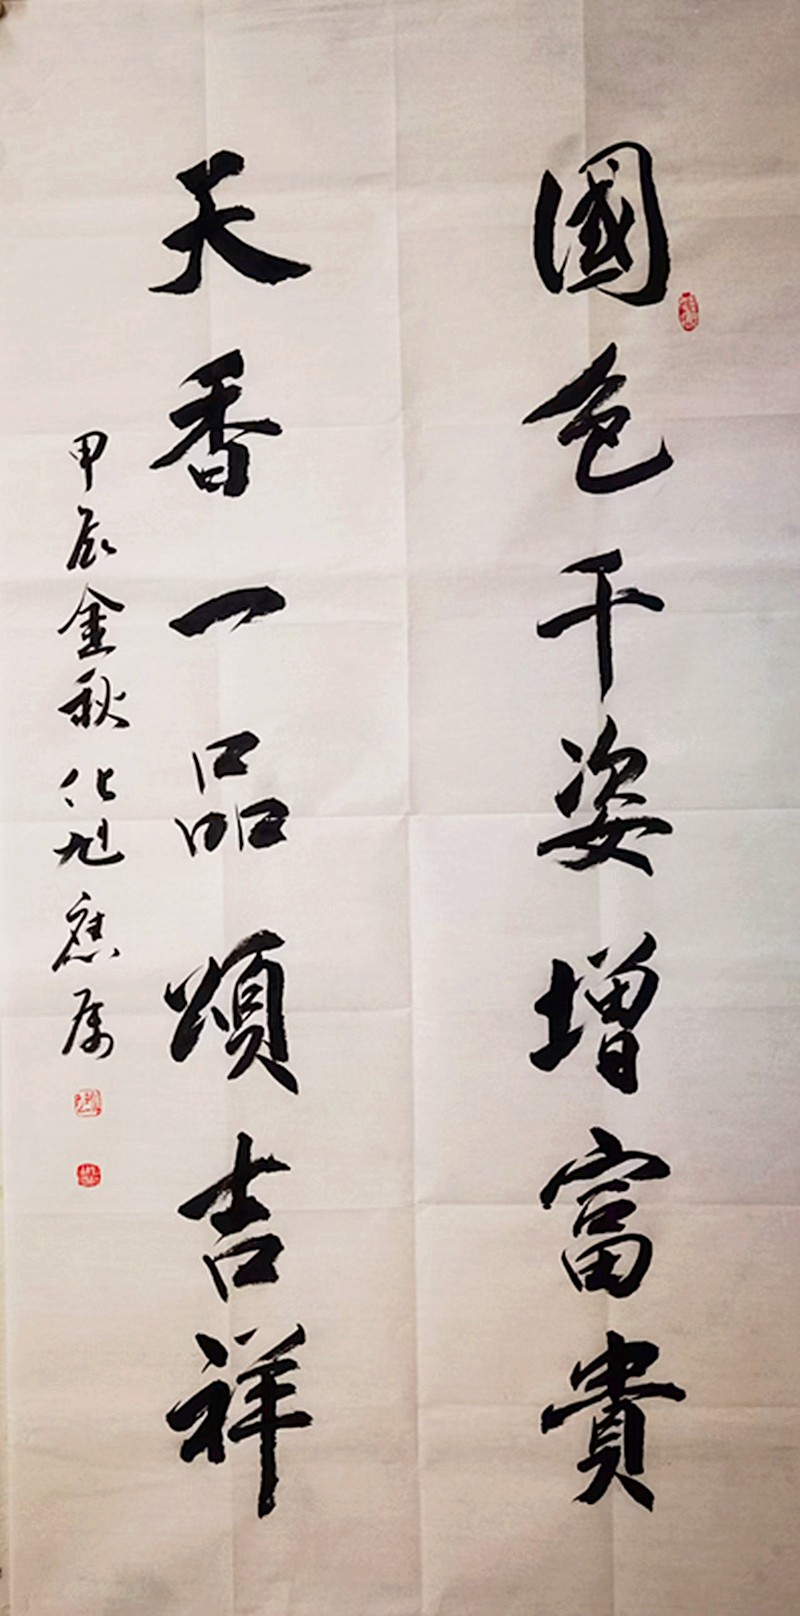 國色千姿增富貴
天香一品頌吉祥
甲辰金秋化旭應属